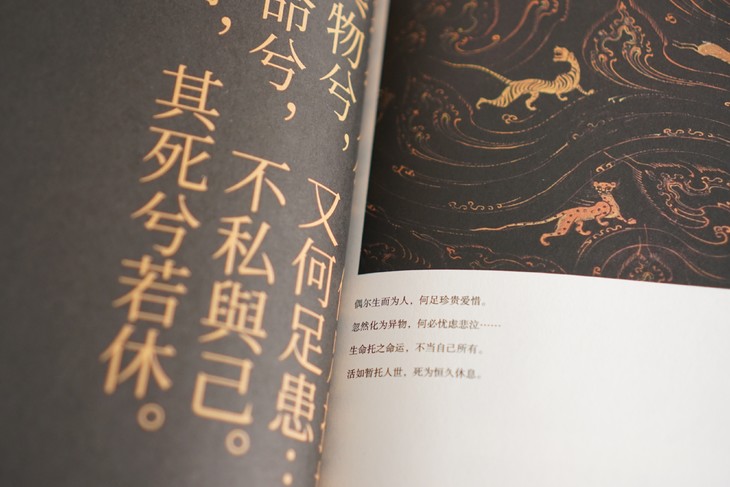 物兮，又何足患……
命兮，不私與己。
，其死兮若休。
偶尔生而为人，何足珍贵爱惜。
忽然化为异物，何必忧虑悲泣……
生命托之命运，不当自己所有。
活如暂托人世，死为恒久休息。